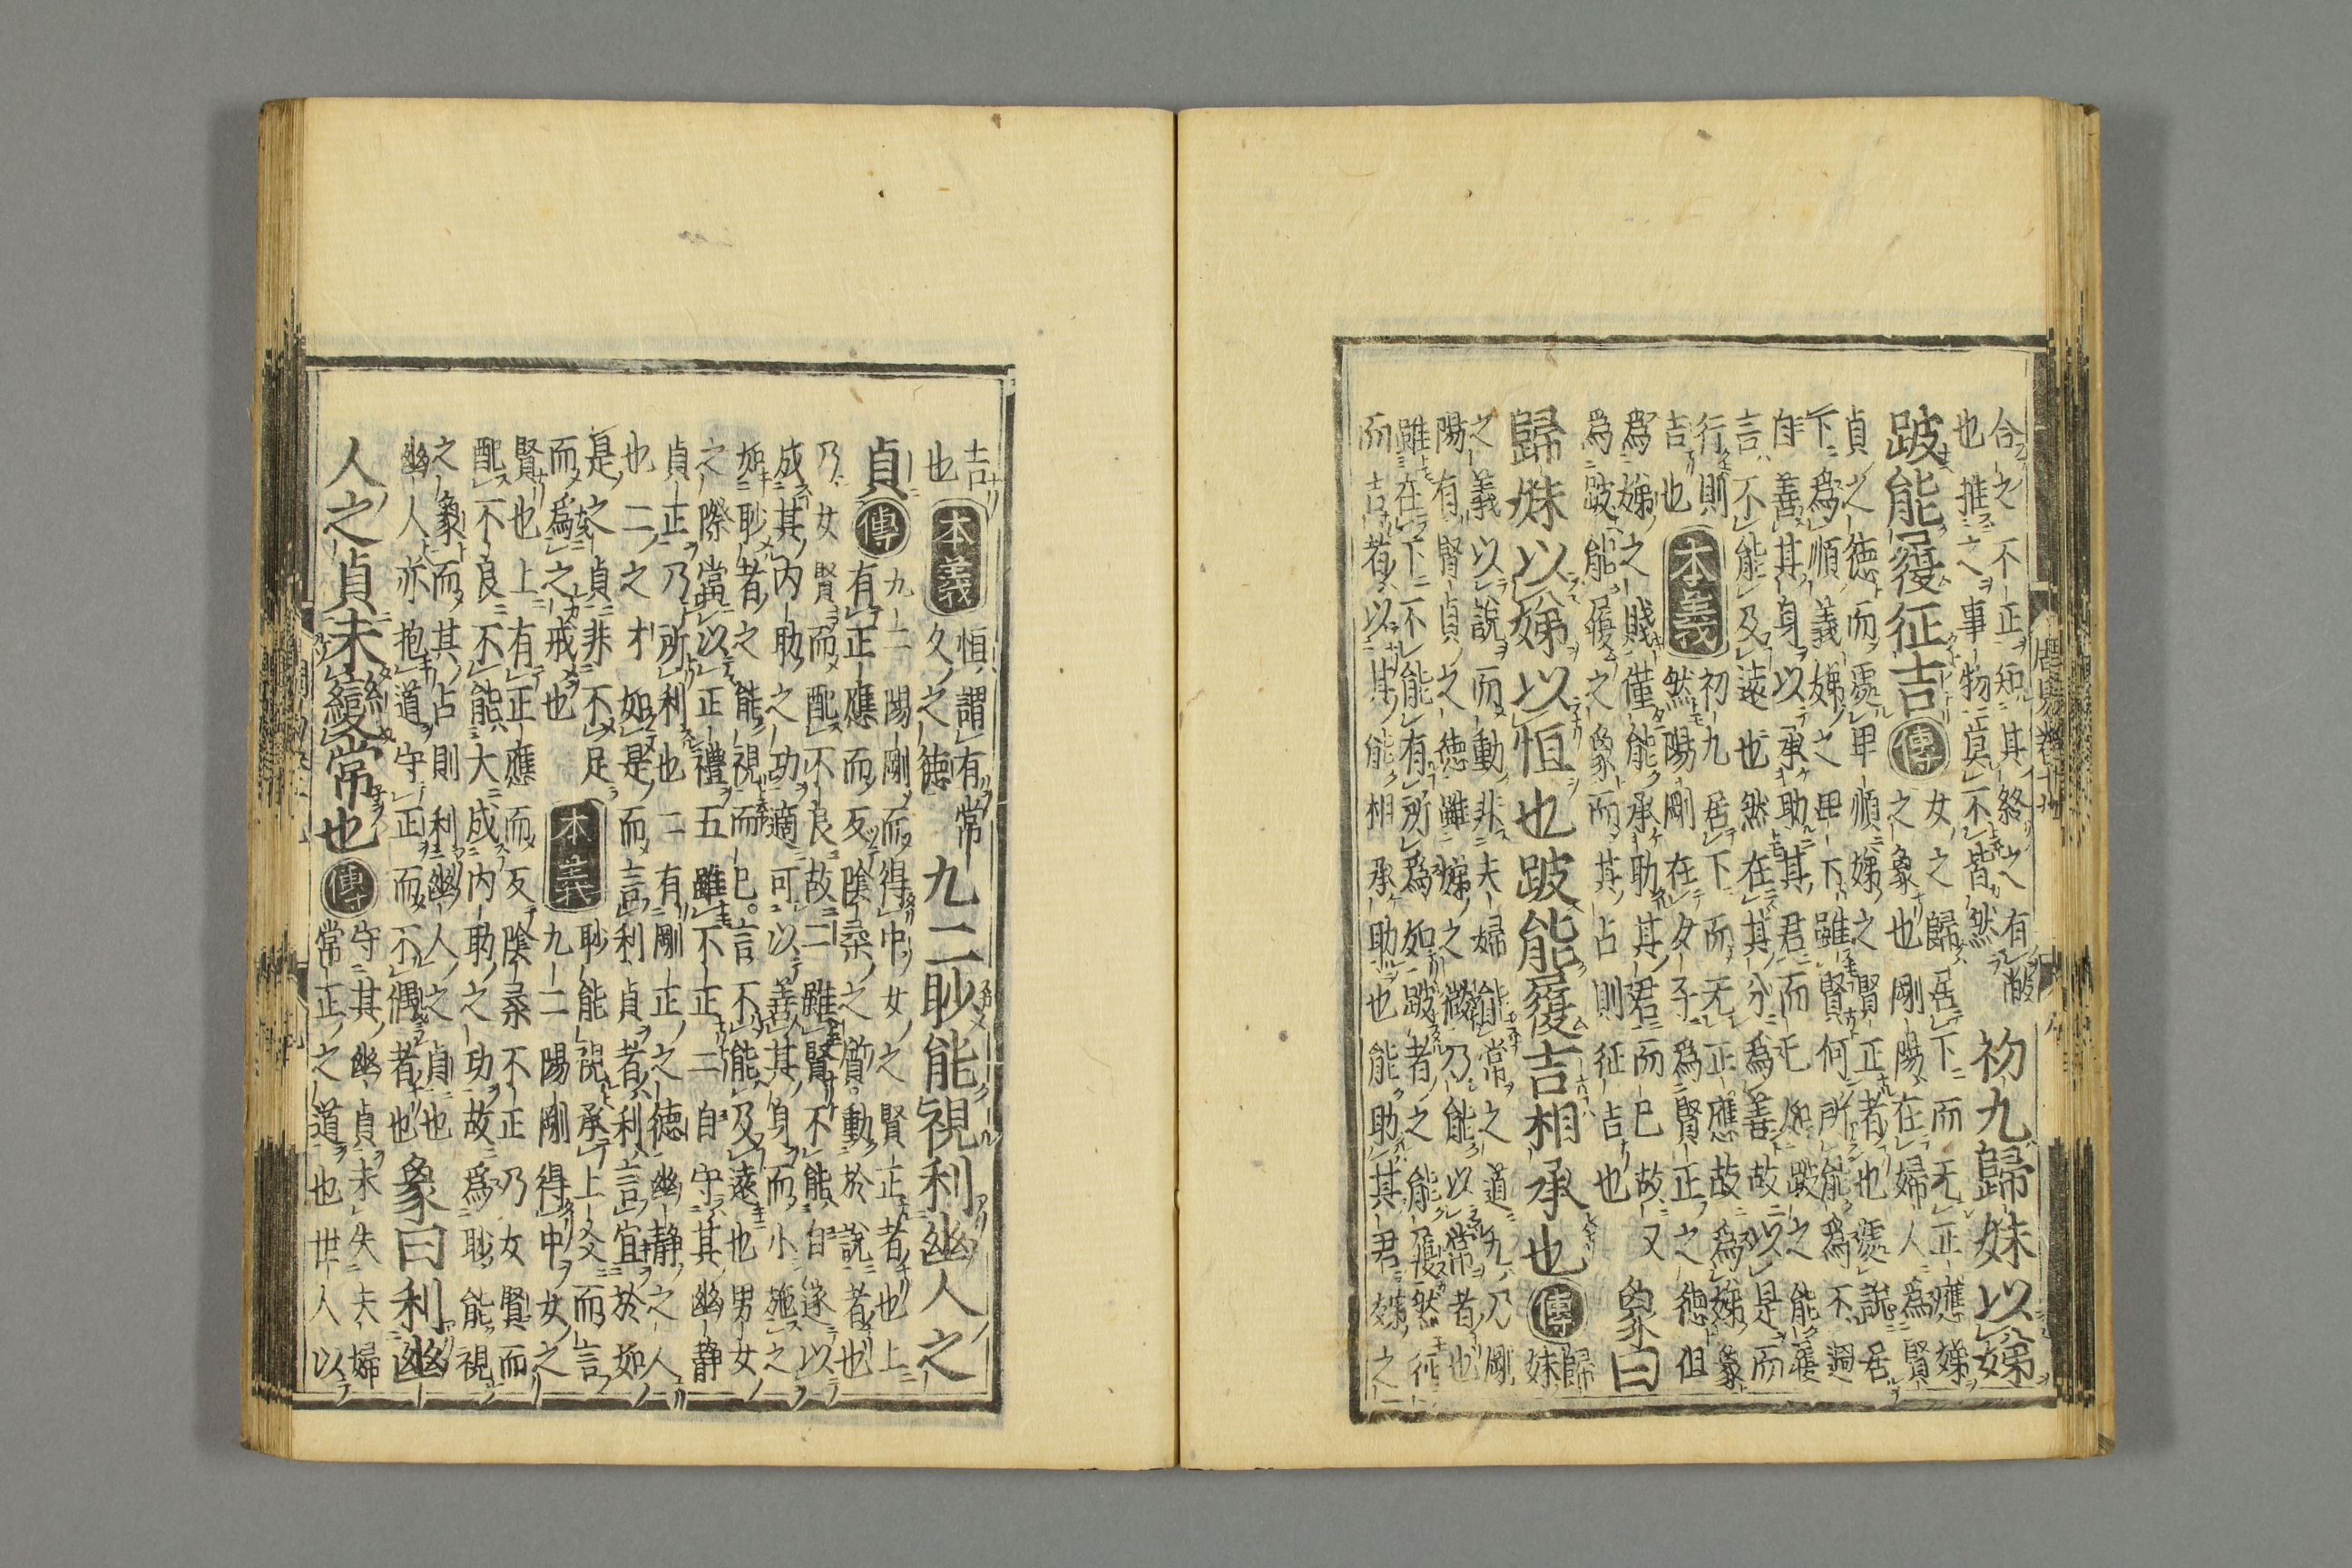 合之不正知其終之有敝
也推之事物莫不皆然
初九歸妹以娣
跛能履征吉
傳
女之歸居下而无正應娣
之象也剛陽在婦人爲賢
貞之德而處卑順娣之賢正者也處說居
下爲順義娣之卑下雖賢何所能爲不過
自善其身以承助其君而已如跛之能履
言不能及遠也然在其分爲善故以是而
行則
吉也
本義
初九居下而无正應故爲娣象
然陽剛在女子爲賢正之德但
爲娣之賤僅能承助其君而已故又
爲跛能履之象而其占則征吉也
象曰
歸妹以娣以恒也跛能履吉相承也
傳
歸
妹
之義以說而動非夫婦能常之道九乃剛
陽有賢貞之德雖娣之微乃能以常者也
雖在下不能有所爲如跛者之能履然征
而吉者以其能相承助也能助其君娣之
吉
也
本義
恒謂有常
久之德
九二眇能視利幽人之
貞
傳
九二陽剛而得中女之賢正者也上
有正應而反陰柔之質動於說者也
乃女賢而配不良故二雖賢不能自遂以
成其內助之功適可以善其身而小施之
如眇者之能視而已言不能及遠也男女
之際當以正禮五雖不正二自守其幽靜
貞正乃所利也二有剛正之德幽靜之人
也二之才如是而言利貞者利言宜於如
是之貞非不足
而爲之戒也
本義
眇能視承上爻而言
九二陽剛得中女之
賢也上有正應而反陰柔不正乃女賢而
配不良不能大成內助之功故爲眇能視
之象而其占則利幽人之貞也
幽人亦抱道守正而不偶者也
象曰利幽
人之貞未變常也
傳
守其幽貞未失夫婦
常正之道也世人以